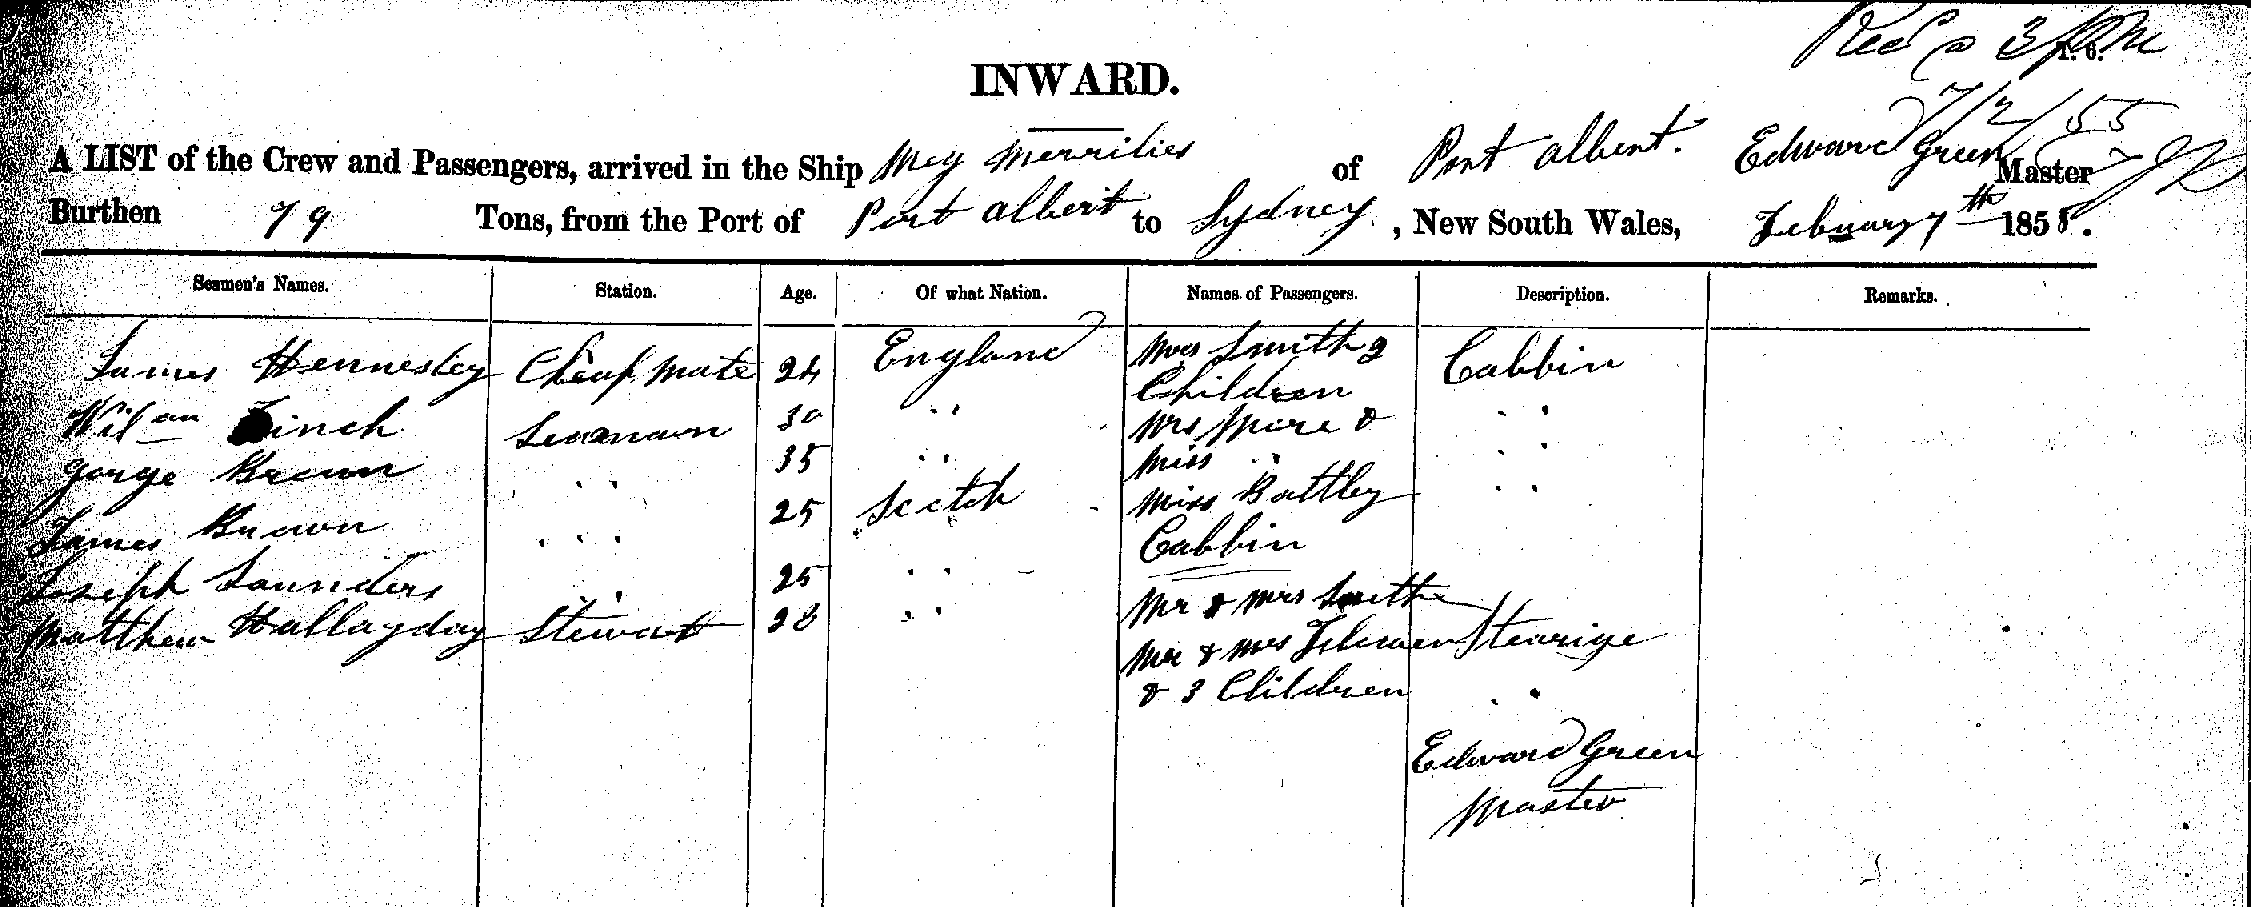 Recd @ 3 PM
7/2/55
INWARD.
A LIST of the Crew and Passengers, arrived in the Ship Meg Merrilies of Port Albert. Edward Green Master
Burthen 79 Tons, from the Port of Port Albert to Sydney, New South Wales, February 7th 1855.
Seamen's Names. Station. Age. Of what Nation. Names of Passengers. Description. Remarks.
James Hennesley Cheaf Mate 24 England Mrs Smith 2 Cabbin
Children
Wilam Finch Seamann 30 " Mrs More & "
Gorge Brown " 35 " Miss " "
James Brown " 25 Scotch Miss Battley "
Cabbin
Joseph Saunders " 25 "
Mr & Mrs Smith
Matthew Hallagday Stewart 28 "
Mr & Mrs Stearige
& 3 Children "
Edward Green
Master